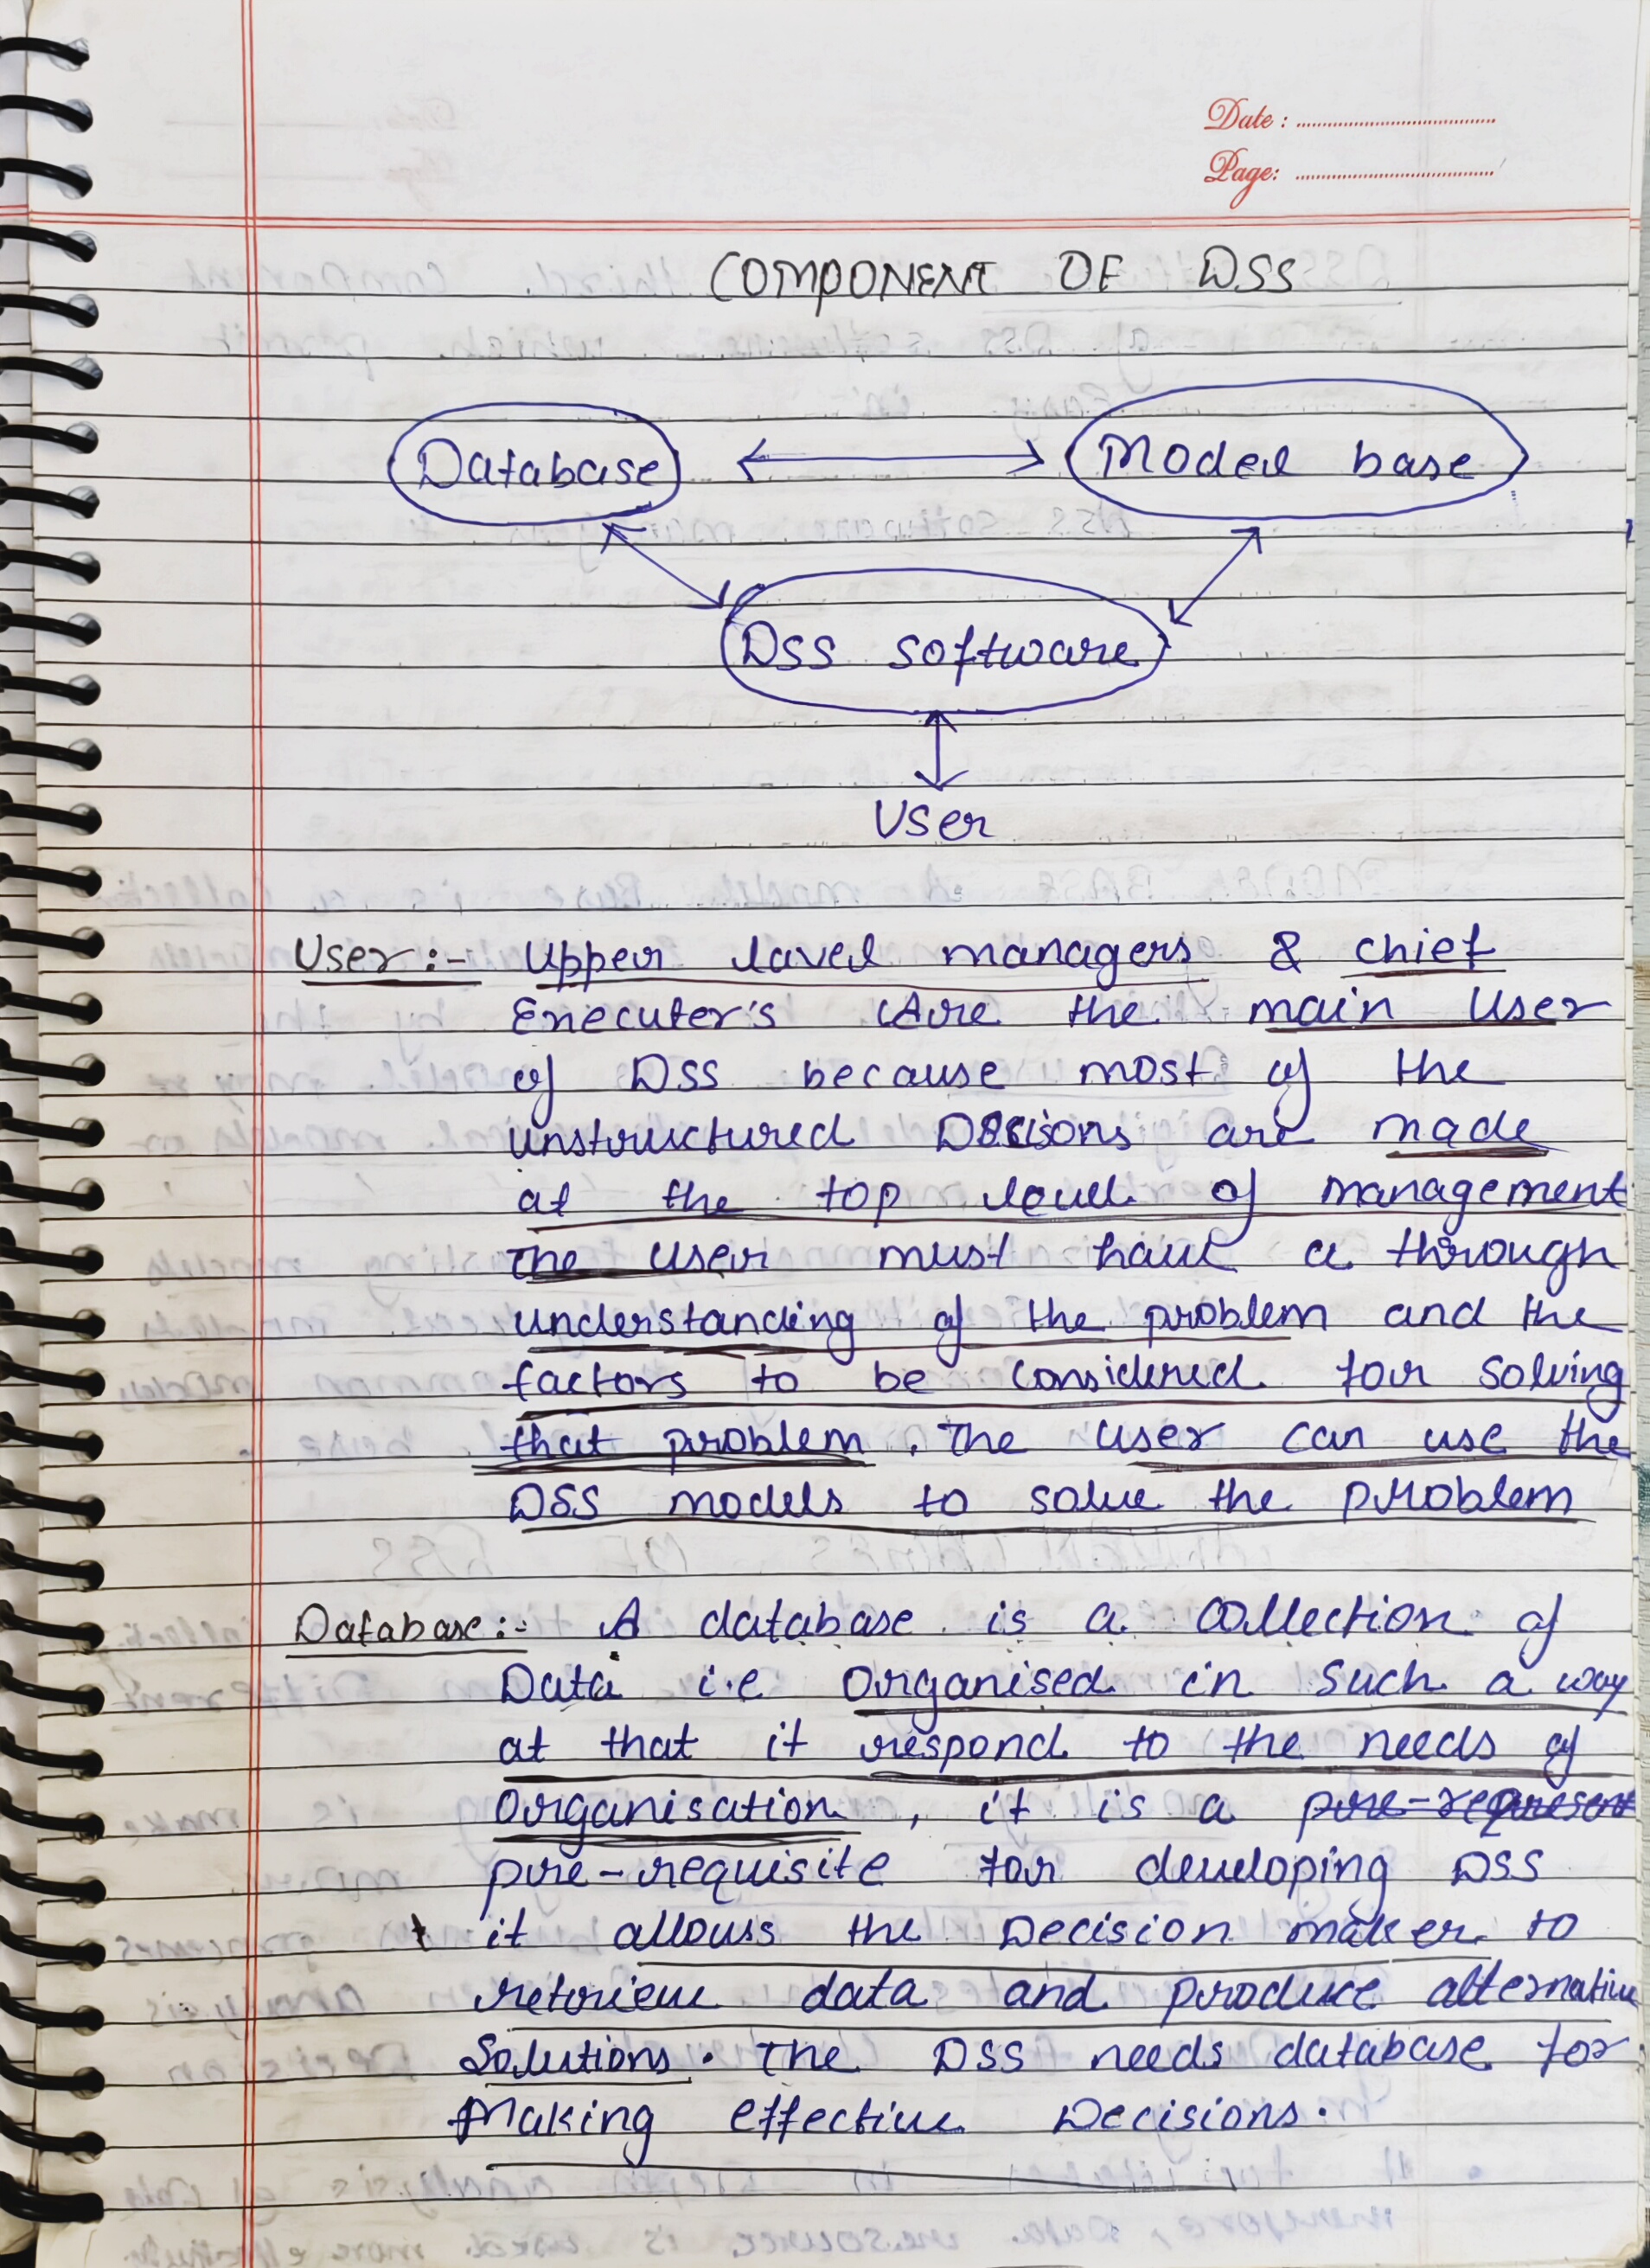 Date :
Page:
COMPONENT OF DSS
Database Model base
DSS software
User
User :- Upper lavel managers & chief
Executer's are the main User
of DSS because most of the
unstructured Decisions are made
at the top level of management
The user must have a through
understanding of the problem and the
factors to be considered for solving
that problem . The user can use the
DSS models to solve the problem
Database :- A database is a collection of
Data i.e organised in such a way
at that it respond to the needs of
Organisation , it is a pre-represent
pre-requisite for developing DSS
it allows the Decision maker to
retrieve data and produce alternative
Solutions . The DSS needs database for
Making effective Decisions .